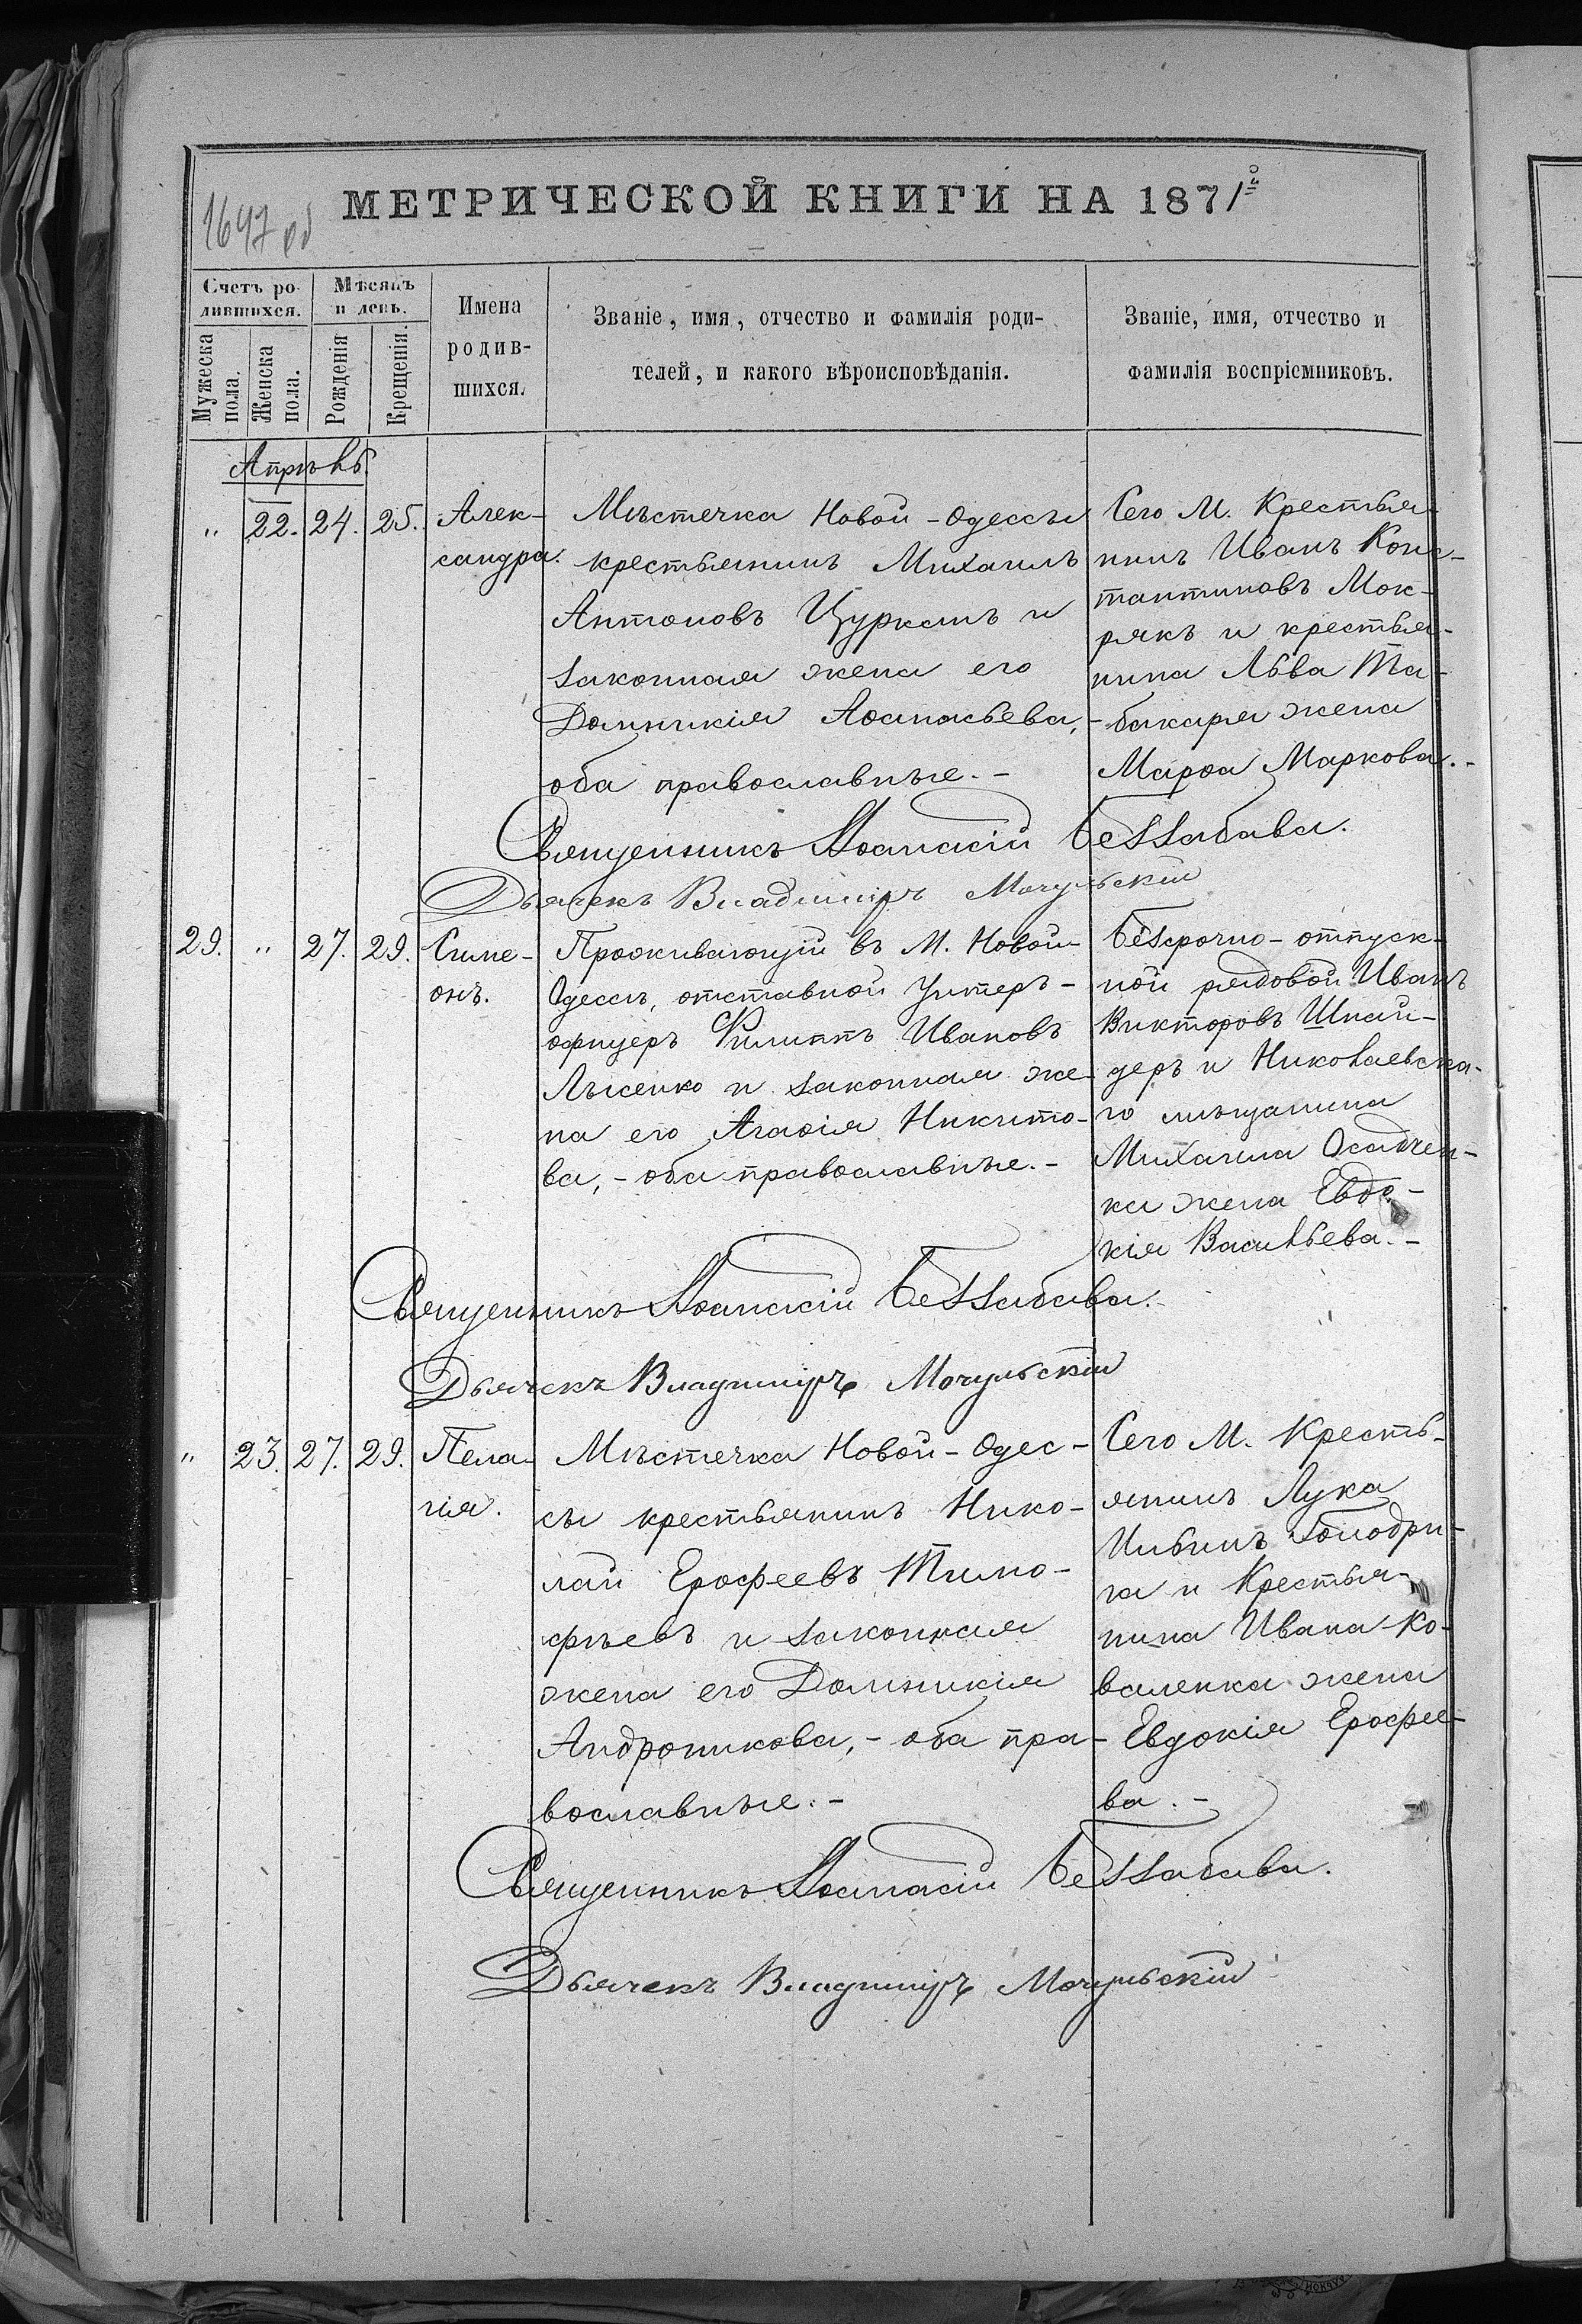 1647 об
МЕТРИЧЕСКОЙ КНИГИ НА 1871го
Счетъ ро-
дившихся.
Мѣсяцъ
и день.
Мужеска
пола.
Женска
пола.
Рожденія
Крещенія.
Имена
родив-
шихся.
Званіе, имя, отчество и фамилія роди-
телей, и какого вѣроисповѣданія.
Званіе, имя, отчество и
фамилія воспріемниковъ.
Апрѣль.
" 22. 24. 25.
Алек-
сандра.
Мѣстечка Новой-Одессы
крестьянинъ Михаилъ
Антоновъ Цурканъ и
законная жена его
Домникія Аѳанасьева,-
оба православные.-
Сего М. Крестья-
нинъ Иванъ Конс-
тантиновъ Мок-
рякъ и крестья-
нина Льва Та-
бакаря жена
Марѳа Маркова.-
Священникъ Аѳанасій Беззабава.
Дьячекъ Владиміръ Мочульскій
29. " 27. 29.
Симе-
онъ.
Проживающій въ М. Новой-
Одессѣ, отставной Унтеръ-
офицеръ Филиппъ Ивановъ
Лысенко и законная же-
на его Агаѳія Никито-
ва,- оба православные.-
Безсрочно-отпуск-
ной рядовой Иванъ
Викторовъ Шнай-
деръ и Николаевска-
го мѣщанина
Михаила Осадчен-
ка жена Евдо-
кія Васильева.-
Священникъ Аѳанасій Беззабава.
Дьячекъ Владиміръ Мочульскій
" 23. 27. 29.
Пела-
гія.
Мѣстечка Новой-Одес-
сы крестьянинъ Нико-
лай Ерофеевъ Тимо-
фѣевъ и законная
жена его Домникія
Андроникова,- оба пра-
вославные.-
Сего М. Кресть-
янинъ Лука
Ильинъ
га и Крестья-
нина Ивана Ко-
валенка жена
Евдокія Ерофее-
ва.-
Священникъ Аѳанасій Беззабава.
Дьячекъ Владиміръ Мочульскій